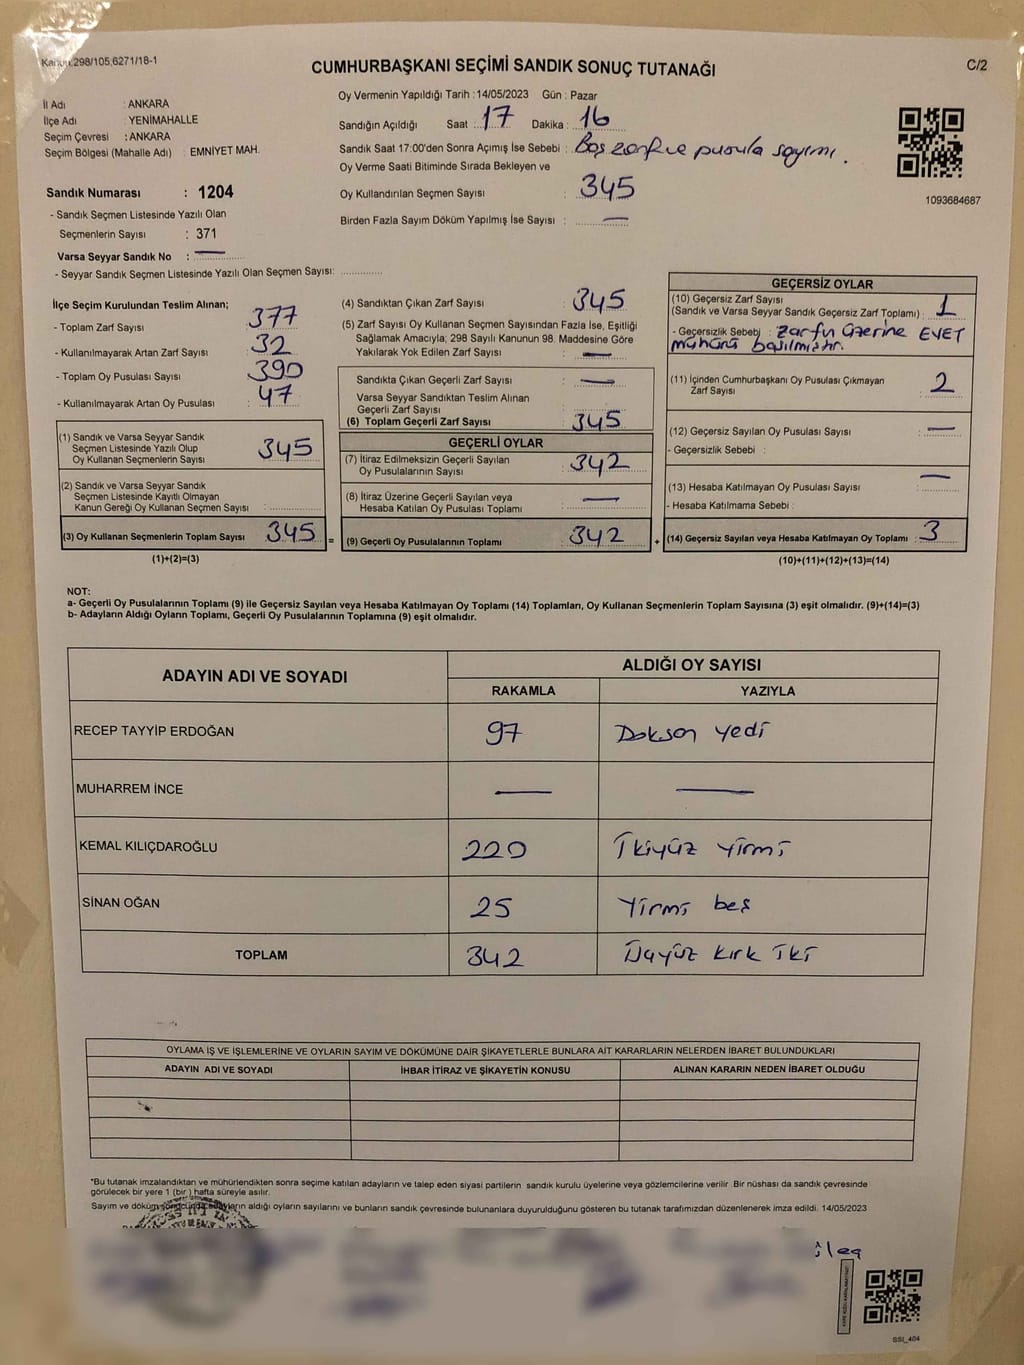 Kanun.298/105,6271/18-1
C/2
CUMHURBAŞKANI SEÇİMİ SANDIK SONUÇ TUTANAĞI
İl Adı : ANKARA
İlçe Adı : YENİMAHALLE
Seçim Çevresi : ANKARA
Seçim Bölgesi (Mahalle Adı) : EMNİYET MAH.
Sandık Numarası : 1204
- Sandık Seçmen Listesinde Yazılı Olan
Seçmenlerin Sayısı : 371
Varsa Seyyar Sandık No : —
- Seyyar Sandık Seçmen Listesinde Yazılı Olan Seçmen Sayısı: ............
Oy Vermenin Yapıldığı Tarih : 14/05/2023 Gün : Pazar
Sandığın Açıldığı Saat : 17 Dakika : 16
Sandık Saat 17:00'den Sonra Açımış İse Sebebi : Boş zarf ve pusula sayımı.
Oy Verme Saati Bitiminde Sırada Bekleyen ve
Oy Kullandırılan Seçmen Sayısı : 345
Birden Fazla Sayım Döküm Yapılmış İse Sayısı : —
1093684687
İlçe Seçim Kurulundan Teslim Alınan;
- Toplam Zarf Sayısı : 377
- Kullanılmayarak Artan Zarf Sayısı : 32
- Toplam Oy Pusulası Sayısı : 390
- Kullanılmayarak Artan Oy Pusulası : 47
(1) Sandık ve Varsa Seyyar Sandık
Seçmen Listesinde Yazılı Olup
Oy Kullanan Seçmenlerin Sayısı : 345
(2) Sandık ve Varsa Seyyar Sandık
Seçmen Listesinde Kayıtlı Olmayan
Kanun Gereği Oy Kullanan Seçmen Sayısı : ............
(3) Oy Kullanan Seçmenlerin Toplam Sayısı : 345 =
(1)+(2)=(3)
(4) Sandıktan Çıkan Zarf Sayısı : 345
(5) Zarf Sayısı Oy Kullanan Seçmen Sayısından Fazla İse, Eşitliği
Sağlamak Amacıyla; 298 Sayılı Kanunun 98. Maddesine Göre
Yakılarak Yok Edilen Zarf Sayısı : —
Sandıkta Çıkan Geçerli Zarf Sayısı : —
Varsa Seyyar Sandıktan Teslim Alınan
Geçerli Zarf Sayısı
(6) Toplam Geçerli Zarf Sayısı : 345
GEÇERLİ OYLAR
(7) İtiraz Edilmeksizin Geçerli Sayılan
Oy Pusulalarının Sayısı : 342
(8) İtiraz Üzerine Geçerli Sayılan veya
Hesaba Katılan Oy Pusulası Toplamı : —
(9) Geçerli Oy Pusulalarının Toplamı : 342 +
GEÇERSİZ OYLAR
(10) Geçersiz Zarf Sayısı
(Sandık ve Varsa Seyyar Sandık Geçersiz Zarf Toplamı) : 1
- Geçersizlik Sebebi : Zarfın üzerine EVET
mühürü basılmıştır.
(11) İçinden Cumhurbaşkanı Oy Pusulası Çıkmayan
Zarf Sayısı : 2
(12) Geçersiz Sayılan Oy Pusulası Sayısı : —
- Geçersizlik Sebebi :
(13) Hesaba Katılmayan Oy Pusulası Sayısı : —
- Hesaba Katılmama Sebebi :
(14) Geçersiz Sayılan veya Hesaba Katılmayan Oy Toplamı : 3
(10)+(11)+(12)+(13)=(14)
NOT:
a- Geçerli Oy Pusulalarının Toplamı (9) ile Geçersiz Sayılan veya Hesaba Katılmayan Oy Toplamı (14) Toplamları, Oy Kullanan Seçmenlerin Toplam Sayısına (3) eşit olmalıdır. (9)+(14)=(3)
b- Adayların Aldığı Oyların Toplamı, Geçerli Oy Pusulalarının Toplamına (9) eşit olmalıdır.
ADAYIN ADI VE SOYADI
ALDIĞI OY SAYISI
RAKAMLA YAZIYLA
RECEP TAYYİP ERDOĞAN 97 Doksan yedi
MUHARREM İNCE — —
KEMAL KILIÇDAROĞLU 220 İkiyüz yirmi
SİNAN OĞAN 25 Yirmi beş
TOPLAM 342 Üçyüz kırk iki
OYLAMA İŞ VE İŞLEMLERİNE VE OYLARIN SAYIM VE DÖKÜMÜNE DAİR ŞİKAYETLERLE BUNLARA AİT KARARLARIN NELERDEN İBARET BULUNDUKLARI
ADAYIN ADI VE SOYADI İHBAR İTİRAZ VE ŞİKAYETİN KONUSU ALINAN KARARIN NEDEN İBARET OLDUĞU
*Bu tutanak imzalandıktan ve mühürlendikten sonra seçime katılan adayların ve talep eden siyasi partilerin sandık kurulu üyelerine veya gözlemcilerine verilir. Bir nüshası da sandık çevresinde
görülecek bir yere 1 (bir) hafta süreyle asılır.
Sayım ve döküm sonucunda adayların aldığı oyların sayılarını ve bunların sandık çevresinde bulunanlara duyurulduğunu gösteren bu tutanak tarafımızdan düzenlenerek imza edildi. 14/05/2023
SSI_404